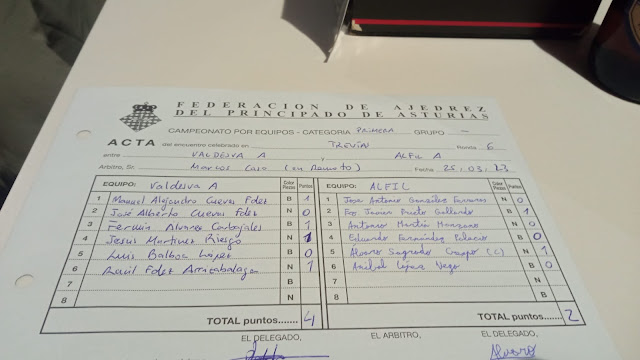 FEDERACION DE AJEDREZ
DEL PRINCIPADO DE ASTURIAS
CAMPEONATO POR EQUIPOS - CATEGORIA PRIMERA GRUPO —
ACTA del encuentro celebrado en TREVIN Ronda 6
entre VALDESVA A y ALFIL A
Arbitro, Sr. Marcos Caso (en Remoto) Fecha 25.03.23
EQUIPO: Valdesva A Color Piezas Puntos
1 Manuel Alejandro Cuevas Fdez B 1
2 José Alberto Cuevas Fdez N 0
3 Fermín Alvarez Carbajales B 1
4 Jesus Martinez Riesgo N 1
5 Luis Balboa Lopez B 0
6 Fdez Arrizabalaga N 1
7 B
8 N
TOTAL puntos....... 4
EQUIPO: ALFIL Color Piezas Puntos
1 Jose Antonio Gonzalez N 0
2 Javier Prieto Gallardo B 1
3 Antonio Martin Manzano N 0
4 Eduardo Fernández B 0
5 Alvaro Sagrado (C) N 1
6 Anibal López Vega B 0
7 N
8 B
TOTAL puntos....... 2
EL DELEGADO, EL ARBITRO, EL DELEGADO,
Alvaro